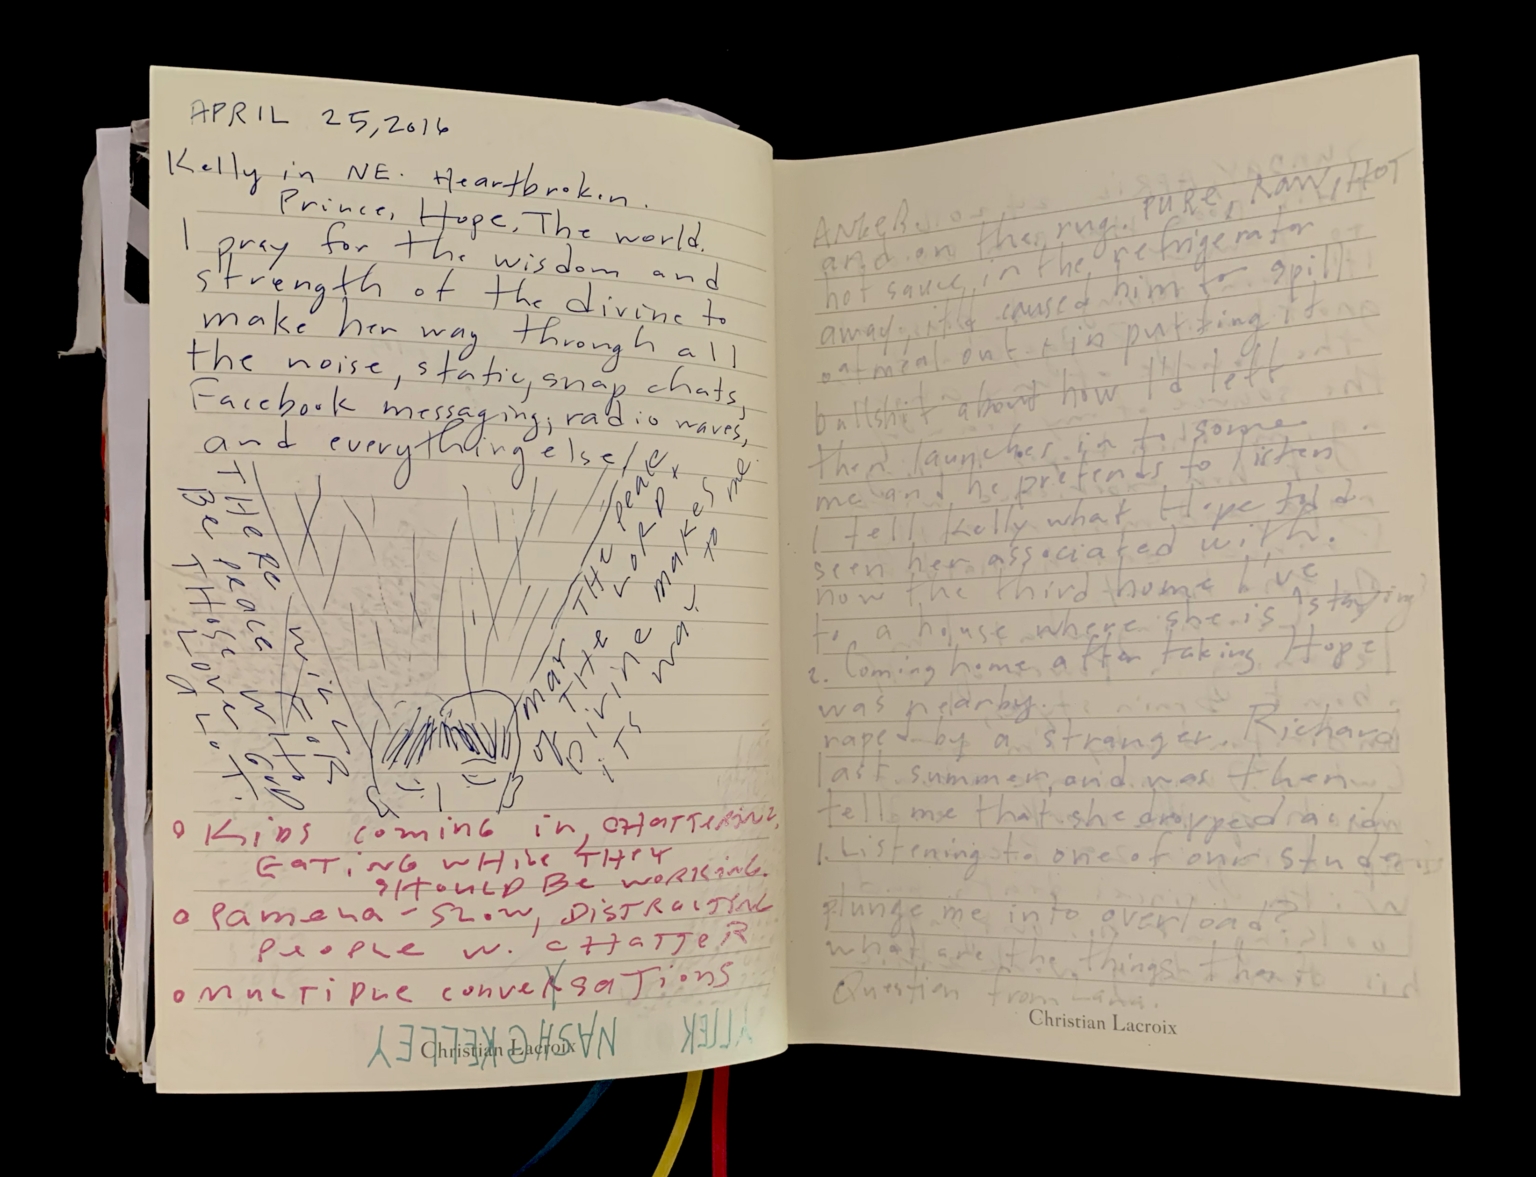 APRIL 25, 2016
Kelly in NE. Heartbroken.
Prince, Hope, The world.
I pray for the wisdom and
strength of the divine to
make her way through all
the noise, static, snap chats,
Facebook messaging, radio waves,
and everything else/
THERE WILL
Be peace FOR
THOSE WHO
Love GOD
a LoT.
may THE peace
OF THE
Divine makes
iTS way to me
• KiDS coming in, CHATTERING,
EATING WHILE THEY
SHOULD Be WORKING.
• Pamela - SLOW, DISTRACTING
People w. CHATTER
• MULTIPLE conveRSATiONS
NASH @ KELLEY
Christian Lacroix
PURE, RAW, HOT
ANGER.
and on the rug.
hot sauce in the refrigerator
away, it'd caused him to spill
oatmeal out & in putting it
bullshit about how I'd left
then launches in to some
me and he pretends to listen
I tell Kelly what Hope told
seen her associated with.
now the third home I've
to a house where she is staying
2. Coming home after taking Hope
was nearby.
raped by a stranger. Richard
last summer, and was then
tell me that she dropped acid
1. Listening to one of our students
plunge me into overload?
what are the things that
Question from Lana.
Christian Lacroix